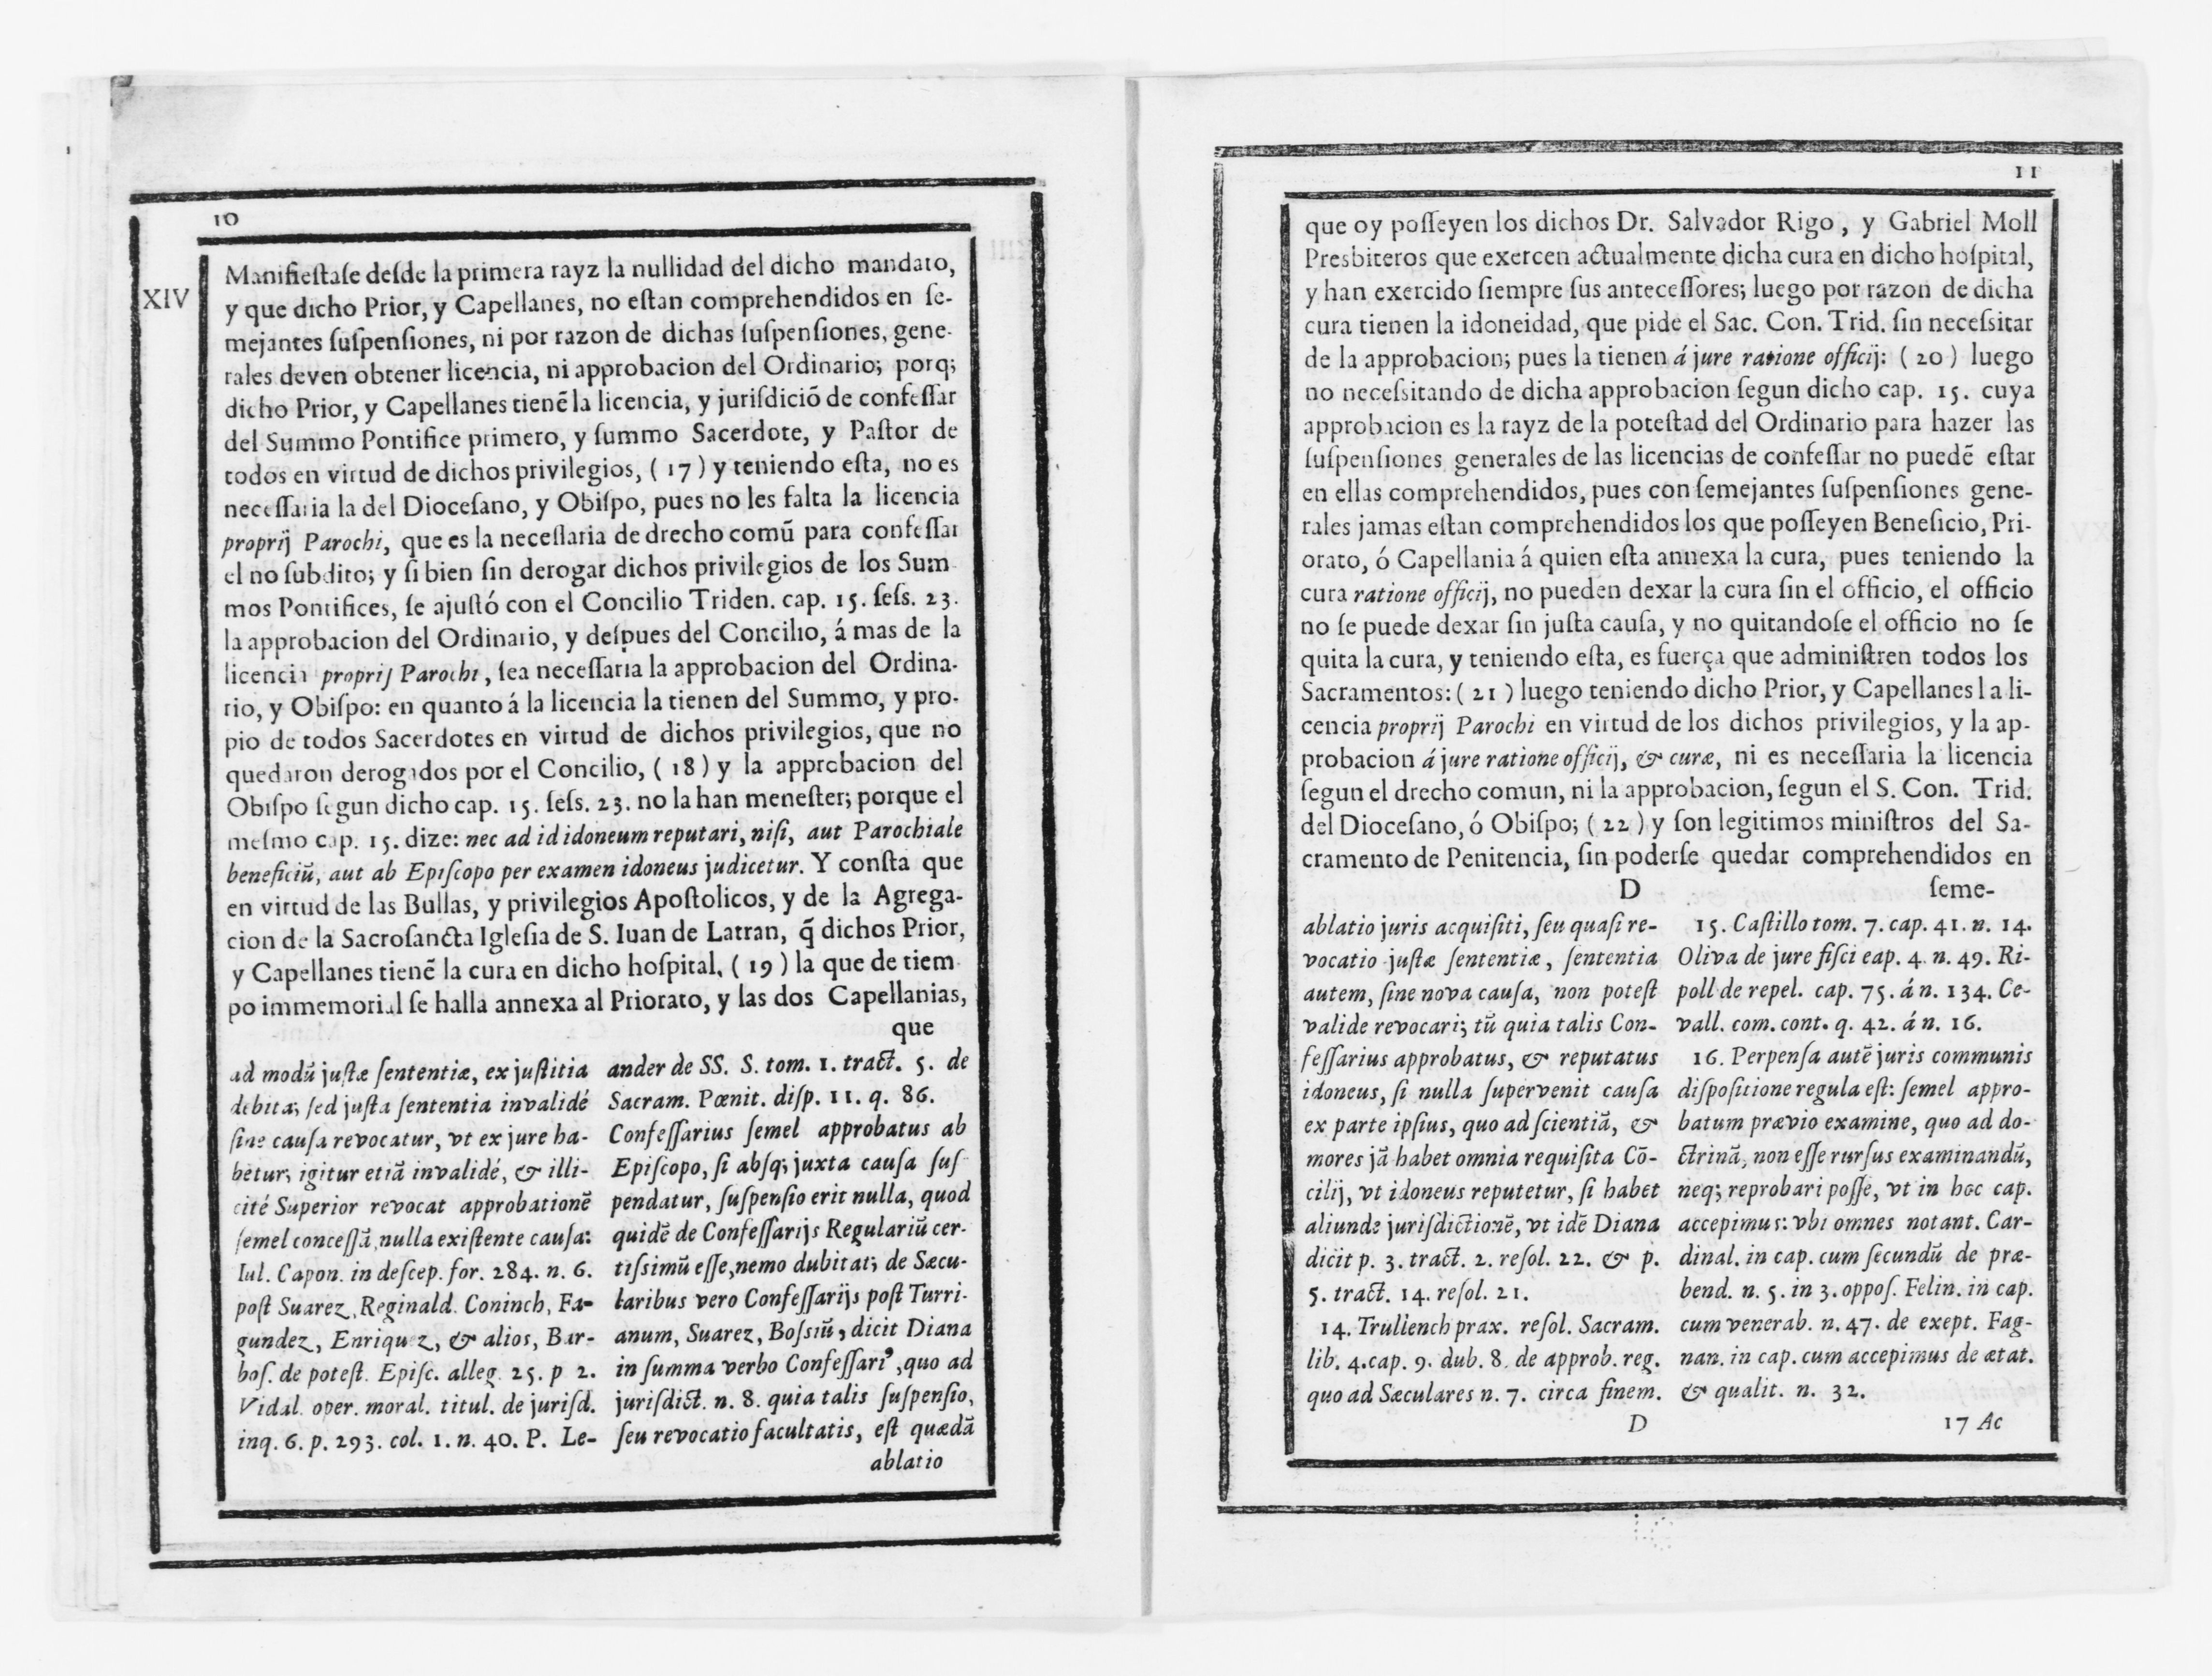 10
XIV
Manifieſtaſe deſde la primera rayz la nullidad del dicho mandato,
y que dicho Prior, y Capellanes, no eſtan comprehendidos en ſe-
mejantes ſuſpenſiones, ni por razon de dichas ſuſpenſiones, gene-
rales deven obtener licencia, ni approbacion del Ordinario; porq;
dicho Prior, y Capellanes tienẽ la licencia, y juriſdiciõ de confeſſar
del Summo Pontifice primero, y ſummo Sacerdote, y Paſtor de
todos en virtud de dichos privilegios, ( 17 ) y teniendo eſta, no es
neceſſaria la del Dioceſano, y Obiſpo, pues no les falta la licencia
proprij Parochi, que es la neceſſaria de drecho comũ para confeſſar
el no ſubdito; y ſi bien ſin derogar dichos privilegios de los Sum
mos Pontifices, ſe ajuſtó con el Concilio Triden. cap. 15. ſeſs. 23.
la approbacion del Ordinario, y deſpues del Concilio, á mas de la
licencia proprij Parochi, ſea neceſſaria la approbacion del Ordina-
rio, y Obiſpo: en quanto á la licencia la tienen del Summo, y pro-
pio de todos Sacerdotes en virtud de dichos privilegios, que no
quedaron derogados por el Concilio, ( 18 ) y la approbacion del
Obiſpo ſegun dicho cap. 15. ſeſs. 23. no la han meneſter; porque el
meſmo cap. 15. dize: nec ad id idoneum reputari, niſi, aut Parochiale
beneficiũ, aut ab Epiſcopo per examen idoneus judicetur. Y conſta que
en virtud de las Bullas, y privilegios Apoſtolicos, y de la Agrega-
cion de la Sacroſancta Igleſia de S. Iuan de Latran, q̃ dichos Prior,
y Capellanes tienẽ la cura en dicho hoſpital, ( 19 ) la que de tiem
po immemorial ſe halla annexa al Priorato, y las dos Capellanias,
que
ad modũ juſtæ ſententiæ, ex juſtitia
debita; ſed juſta ſententia invalidé
ſine cauſa revocatur, vt ex jure ha-
betur; igitur etiã invalidé, & illi-
cité Superior revocat approbationẽ
ſemel conceſſã, nulla exiſtente cauſa:
Iul. Capon. in deſcep. for. 284. n. 6.
poſt Suarez, Reginald. Coninch, Fa-
gundez, Enriquez, & alios, Bar-
boſ. de poteſt. Epiſc. alleg. 25. p 2.
Vidal. oper. moral. titul. de juriſd.
inq. 6. p. 293. col. 1. n. 40. P. Le-
ander de SS. S. tom. 1. tract. 5. de
Sacram. Pœnit. diſp. 11. q. 86.
Confeſſarius ſemel approbatus ab
Epiſcopo, ſi abſq; juxta cauſa ſuſ
pendatur, ſuſpenſio erit nulla, quod
quidẽ de Confeſſarijs Regulariũ cer-
tiſsimũ eſſe, nemo dubitat; de Sæcu-
laribus vero Confeſſarijs poſt Turri-
anum, Suarez, Boſsiũ, dicit Diana
in ſumma verbo Confeſſariꝰ, quo ad
juriſdict. n. 8. quia talis ſuſpenſio,
ſeu revocatio facultatis, eſt quædã
ablatio
11
que oy poſſeyen los dichos Dr. Salvador Rigo, y Gabriel Moll
Presbiteros que exercen actualmente dicha cura en dicho hoſpital,
y han exercido ſiempre ſus anteceſſores; luego por razon de dicha
cura tienen la idoneidad, que pide el Sac. Con. Trid. ſin neceſsitar
de la approbacion; pues la tienen á jure ratione officij: ( 20 ) luego
no neceſsitando de dicha approbacion ſegun dicho cap. 15. cuya
approbacion es la rayz de la poteſtad del Ordinario para hazer las
ſuſpenſiones generales de las licencias de confeſſar no puedẽ eſtar
en ellas comprehendidos, pues con ſemejantes ſuſpenſiones gene-
rales jamas eſtan comprehendidos los que poſſeyen Beneficio, Pri-
orato, ó Capellania á quien eſta annexa la cura, pues teniendo la
cura ratione officij, no pueden dexar la cura ſin el officio, el officio
no ſe puede dexar ſin juſta cauſa, y no quitandoſe el officio no ſe
quita la cura, y teniendo eſta, es fuerça que adminiſtren todos los
Sacramentos: ( 21 ) luego teniendo dicho Prior, y Capellanes l a li-
cencia proprij Parochi en virtud de los dichos privilegios, y la ap-
probacion á jure ratione officij, & curæ, ni es neceſſaria la licencia
ſegun el drecho comun, ni la approbacion, ſegun el S. Con. Trid.
del Dioceſano, ó Obiſpo; ( 22 ) y ſon legitimos miniſtros del Sa-
cramento de Penitencia, ſin poderſe quedar comprehendidos en
D ſeme-
ablatio juris acquiſiti, ſeu quaſi re-
vocatio juſtæ ſententiæ, ſententia
autem, ſine nova cauſa, non poteſt
valide revocari; tũ quia talis Con-
feſſarius approbatus, & reputatus
idoneus, ſi nulla ſupervenit cauſa
ex parte ipſius, quo ad ſcientiã, &
mores jã habet omnia requiſita Cõ-
cilij, vt idoneus reputetur, ſi habet
aliunde juriſdictionẽ, vt idẽ Diana
dicit p. 3. tract. 2. reſol. 22. & p.
5. tract. 14. reſol. 21.
14. Trullench prax. reſol. Sacram.
lib. 4. cap. 9. dub. 8. de approb. reg.
quo ad Sæculares n. 7. circa finem.
15. Caſtillo tom. 7. cap. 41. n. 14.
Oliva de jure fiſci eap. 4. n. 49. Ri-
poll de repel. cap. 75. á n. 134. Ce-
vall. com. cont. q. 42. á n. 16.
16. Perpenſa autẽ juris communis
diſpoſitione regula eſt: ſemel appro-
batum prævio examine, quo ad do-
ctrinã, non eſſe rurſus examinandũ,
neq; reprobari poſſe, vt in hoc cap.
accepimus: vbi omnes notant. Car-
dinal. in cap. cum ſecundũ de præ-
bend. n. 5. in 3. oppoſ. Felin. in cap.
cum venerab. n. 47. de exept. Fag-
nan. in cap. cum accepimus de ætat.
& qualit. n. 32.
D 17 Ac